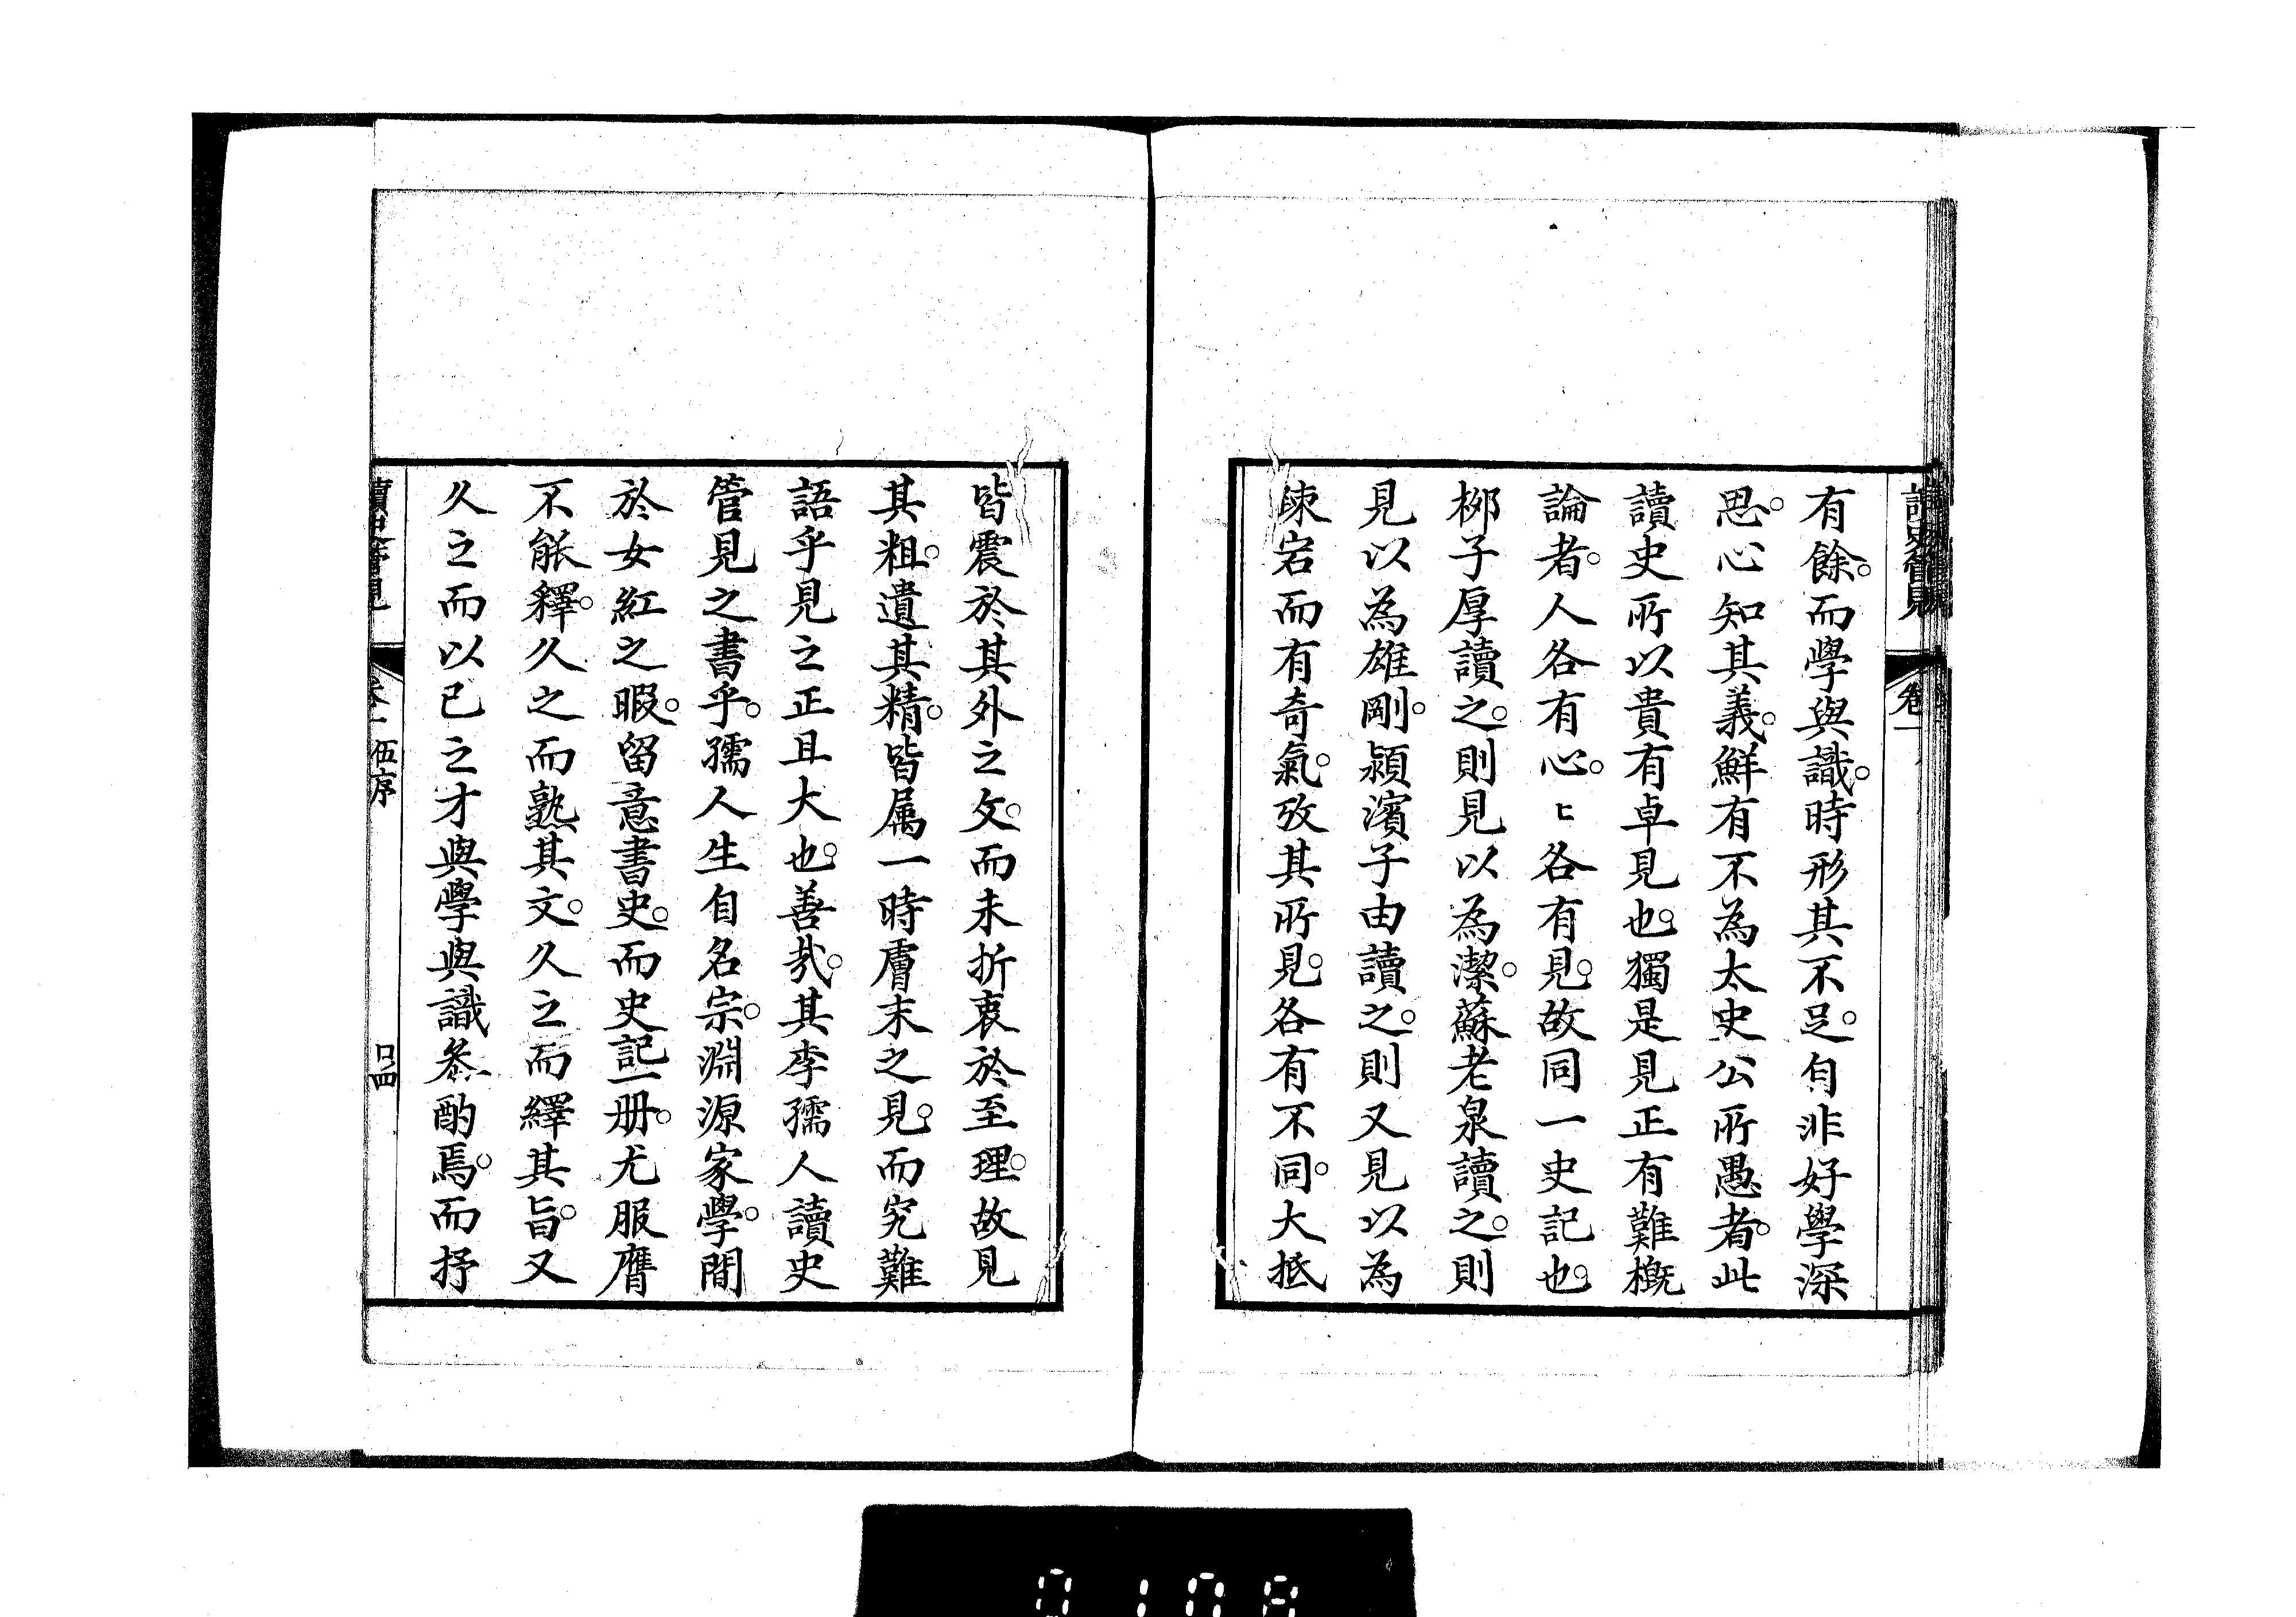 讀史管見
卷一
有餘。而學與識。時形其不足。自非好學深
思。心知其義。鮮有不為太史公所愚者。此
讀史所以貴有卓見也。獨是見正有難概
論者。人各有心。〻各有見。故同一史記也。
柳子厚讀之。則見以為潔。蘇老泉讀之。則
見以為雄剛。潁濱子由讀之。則又見以為
疎宕而有奇氣。攷其所見。各有不同。大抵
皆震於其外之文。而未折衷於至理。故見
其粗。遺其精。皆属一時膚末之見。而究難
語乎見之正且大也。善哉。其李孺人讀史
管見之書乎。孺人生自名宗。淵源家學。閒
於女紅之暇。留意書史。而史記一冊。尤服膺
不能釋。久之而熟其文。久之而繹其旨。又
久之而以己之才與學與識叅酌焉。而抒
讀史管見
卷一 伍序
口四
0108